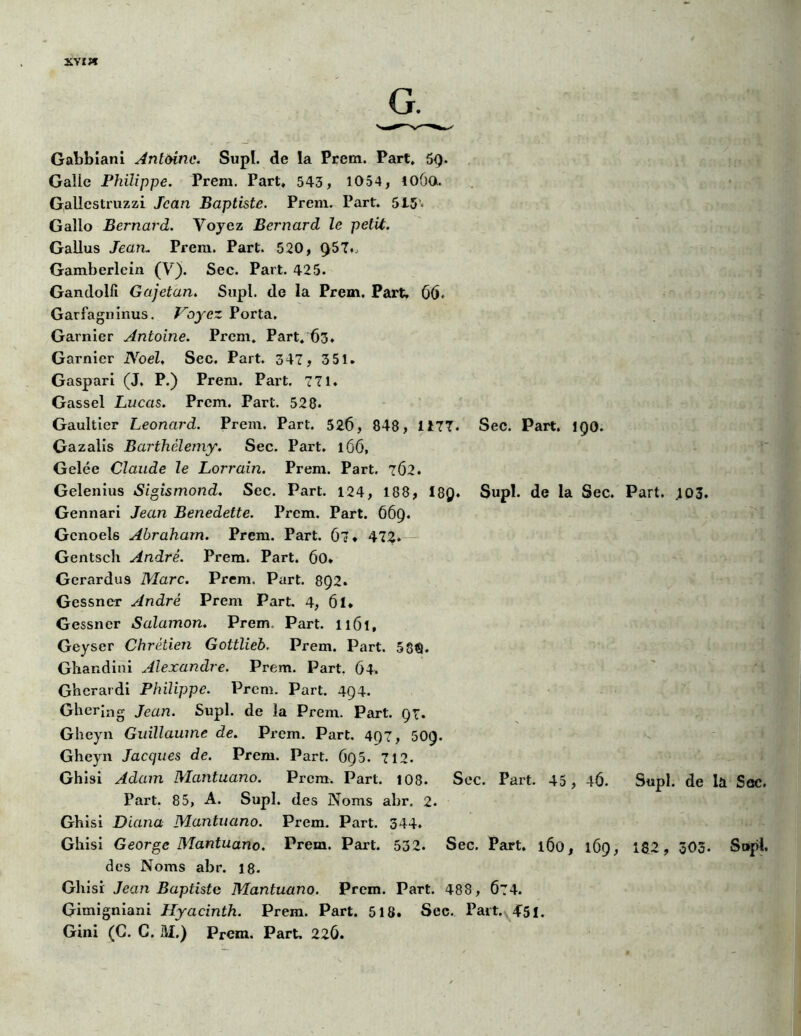 G.
Gabbiani Antoine. Supl. de la Prem. Part. 59.
Galle Philippe. Prem. Part. 543, 1054, 1060.
Gallestruzzi Jean Baptiste. Prem. Part. 515.
Gallo Bernard. Voyez Bernard le petit.
Gallus Jean. Prem. Part. 520, 957.
Gamberlein (V). Sec. Part. 425.
Gandolfi Gajetan. Supl. de la Prem. Part. 66.
Garfagninus. Voyez Porta.
Garnier Antoine. Prem. Part. 63.
Garnier Noel. Sec. Part. 347, 351.
Gaspari (J. P.) Prem. Part. 771.
Gassel Lucas. Prem. Part. 528.
Gaultier Leonard. Prem. Part. 526, 848, 1177. Sec. Part. 190.
Gazalis Barthélemy. Sec. Part. 166,
Gelée Claude le Lorrain. Prem. Part. 762.
Gelenius Sigismond. Sec. Part. 124, 188, 189. Supl. de la Sec. Part. 103.
Gennari Jean Benedette. Prem. Part. 669.
Genoels Abraham. Prem. Part. 67. 472.
Gentsch André. Prem. Part. 60.
Gerardus Marc. Prem. Part. 892.
Gessner André Prem Part. 4, 61.
Gessner Salamon. Prem. Part. 1161,
Geyser Chrétien Gottlieb. Prem. Part.
Ghandini Alexandre. Prem. Part. 64.
Gherardi Philippe. Prem. Part. 494.
Ghering Jean. Supl. de la Prem. Part. 97.
Gheyn Guillaume de. Prem. Part. 497, 509.
Gheyn Jacques de. Prem. Part. 695. 712.
Ghisi Adam Mantuano. Prem. Part. 108. Sec. Part. 45, 46. Supl. de la Sec.
Part. 85, A. Supl. des Noms abr. 2.
Ghisi Diana Mantuano. Prem. Part. 344.
Ghisi George Mantuano. Prem. Part. 532. Sec. Part. 160, 169, 182, 303. Supl.
des Noms abr. 18.
Ghisi Jean Baptiste Mantuano. Prem. Part. 488, 674.
Gimigniani Hyacinth. Prem. Part. 518. Sec. Part. 451.
Gini (C. C. M.) Prem. Part. 226.